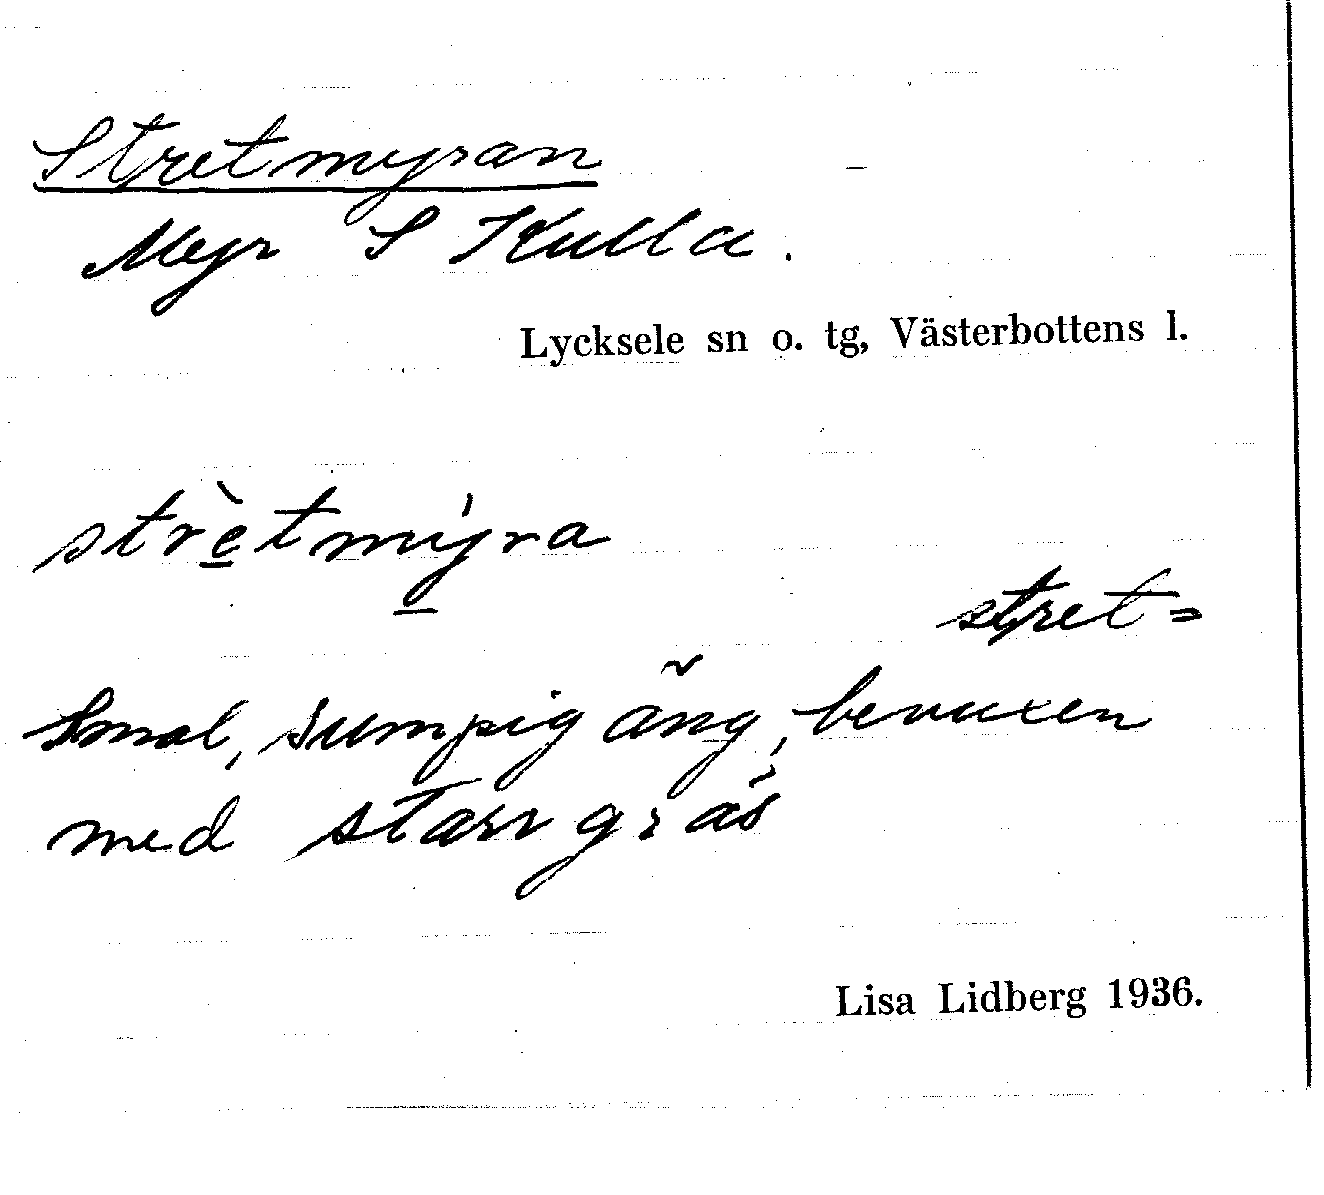 Stretmyran
Myr S Kulla.
Lycksele sn o. tg, Västerbottens l.
strètmýra
stret=
Smal, sumpig äng, bevuxen
med starrgräs
Lisa Lidberg 1936.